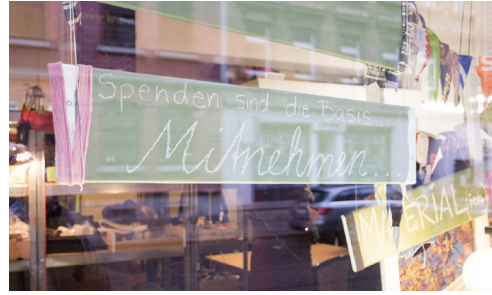 Spenden sind die Basis
Mitnehmen...
MATERIAL